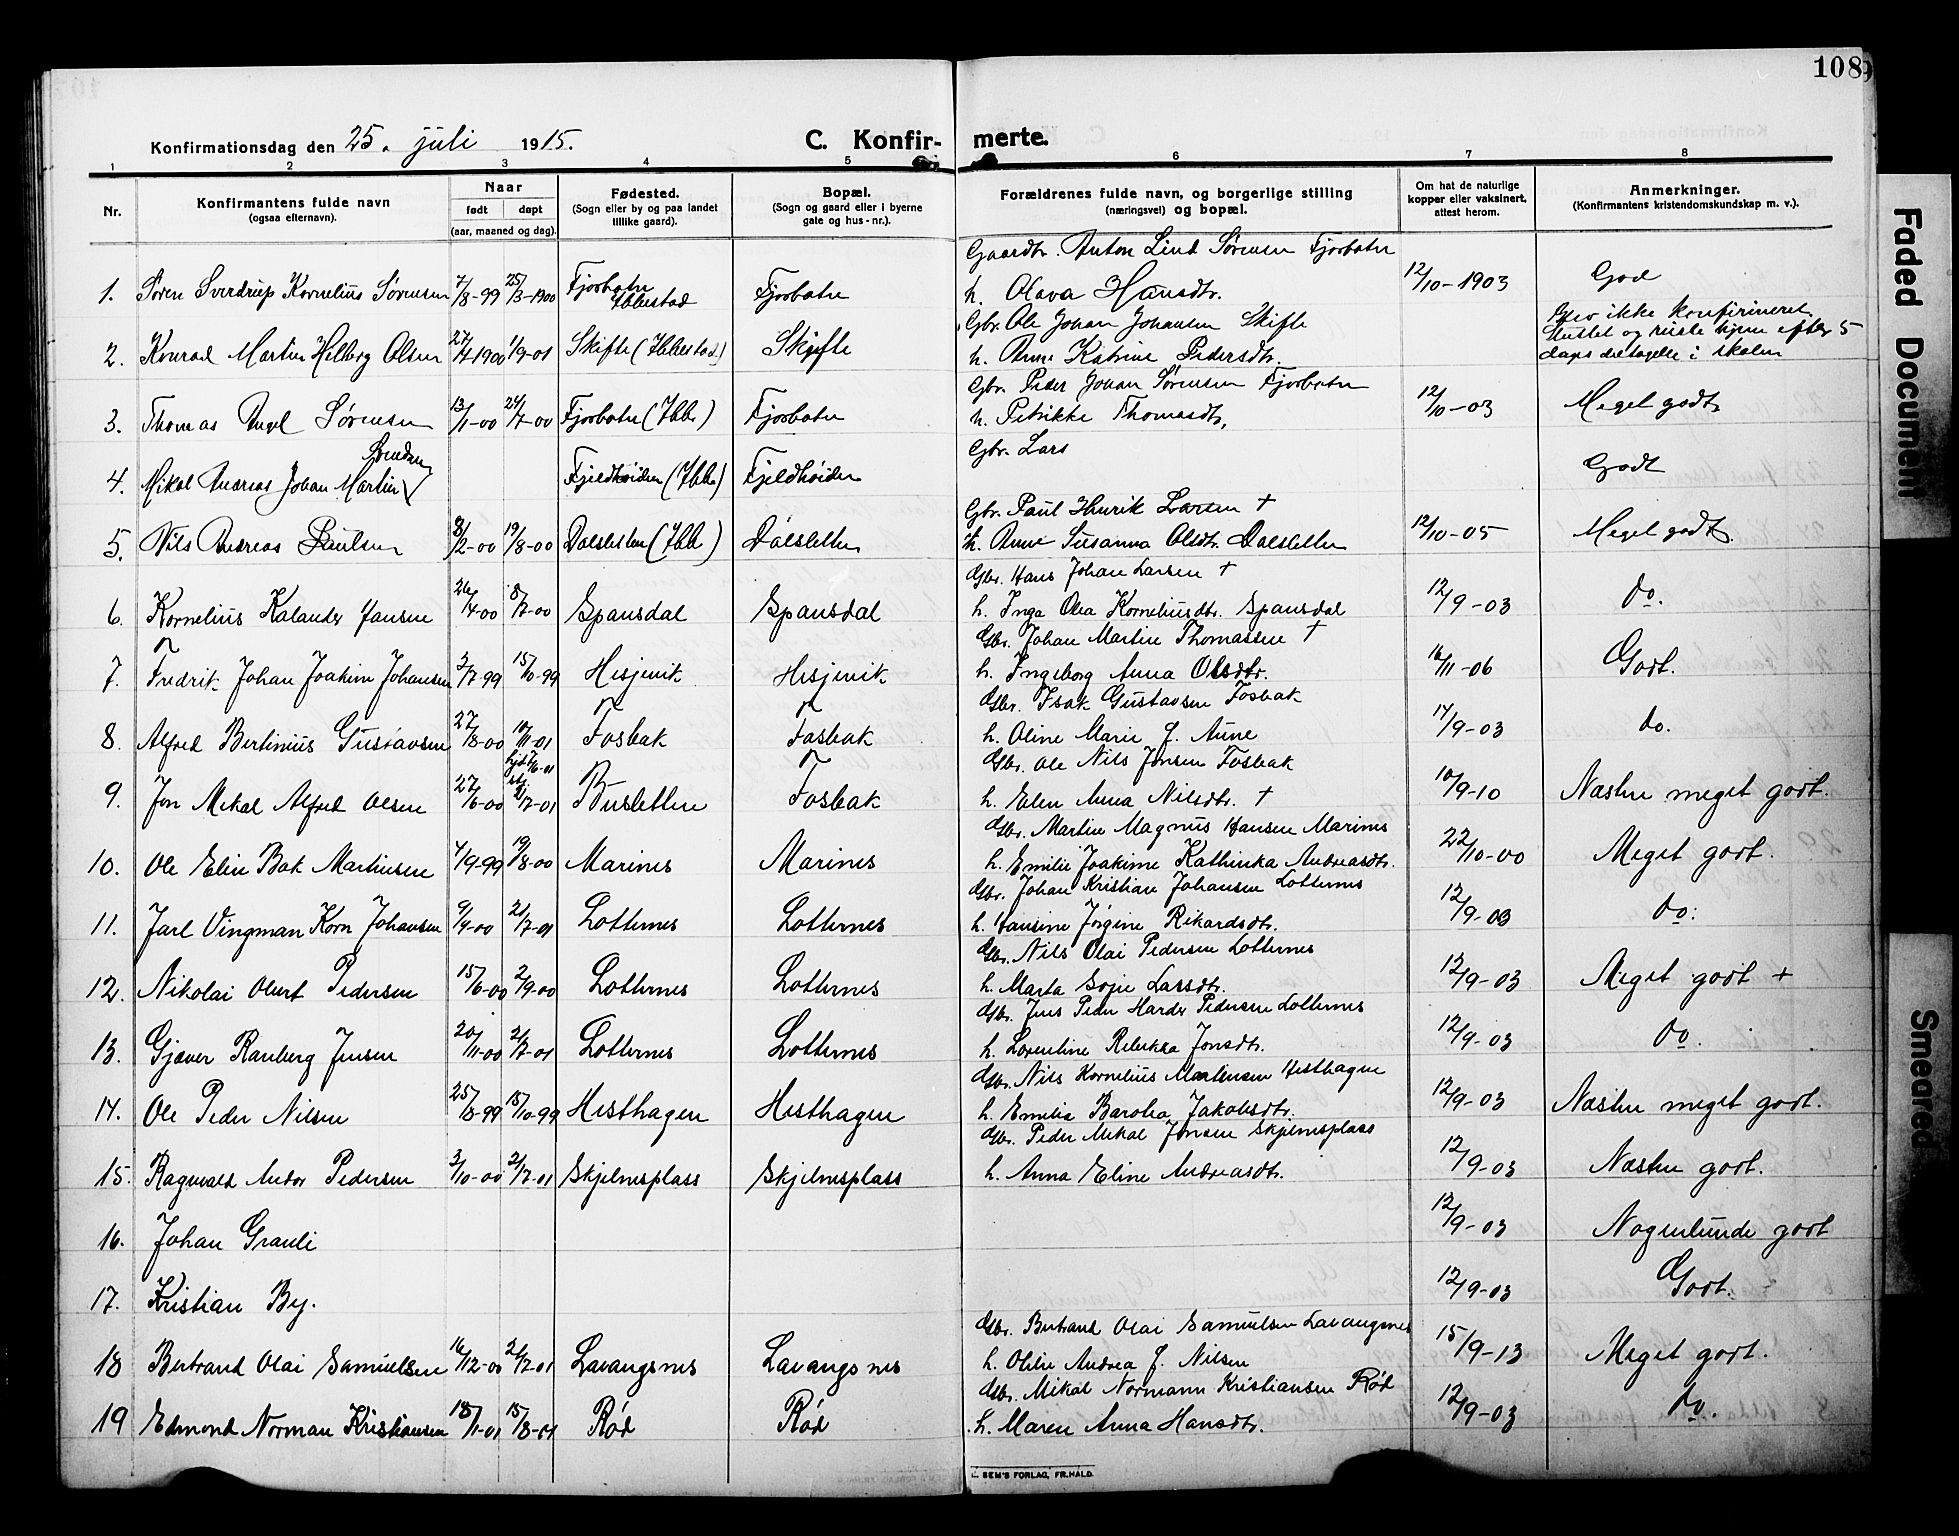 108
Konfirmationsdag den 25. juli 1915.
C. Konfir- merte.
1 2 3 4 5 6 7 8
Nr.
Konfirmantens fulde navn
(ogsaa efternavn).
Naar
født døpt
(aar, maaned og dag).
Fødested.
(Sogn eller by og paa landet
tillike gaard).
Bopæl.
(Sogn og gaard eller i byerne
gate og hus-nr.).
Forældrenes fulde navn, og borgerlige stilling
(næringsvei) og bopæl.
Om hat de naturlige
kopper eller vaksinert,
attest herom.
Anmerkninger.
(Konfirmantens kristendomskundskap m. v.).
Gaardbr. Anton Lind Sørensen Fjorbotn
1. Søren Sverdrup Kornelius Sørensen 7/8-99 25/3-1900 Fjorbotn Ibbestad Fjorbotn h. Olava Hansdtr. 12/10-1903 God
Gbr. Ole Johan Johansen Skifte Blev ikke konfirmeret.
Sluttet og reiste hjem efter 5
2. Konrad Martin Helberg Olsen 27/4 1900 1/9-01 Skifte (Ibbestad) Skifte h. Anne Katrine Pedersdtr. dags deltagelse i skolen
Gbr. Peder Johan Sørensen Fjorbotn
3. Thomas Angel Sørensen 13/1-00 24/7-00 Fjorbotn (Ibb.) Fjorbotn h. Petrikke Thomasdtr. 12/10-03 Meget godt
Gbr. Lars
4. Mikal Andreas Johan Martin Fjeldhøiden (Ibb.) Fjeldhøiden Godt
Gbr. Paul Henrik Larsen †
5. Nils Andreas Paulsen 8/2-00 19/8-00 Dalsletten (Ibb.) Dalsletten h. Anne Susanna Olsdtr. Dalsletten 12/10-05 Meget godt
Gbr. Hans Johan Larsen †
6. Kornelius Kalander Hansen 26/4-00 8/7-00 Spansdal Spansdal h. Inga Olea Korneliusdtr. Spansdal 12/9-03 do.
Gbr. Johan Martin Thomassen †
7. Fredrik Johan Joakim Johansen 3/7-99 15/10-99 Hesjevik Hesjevik h. Ingeborg Anna Olsdtr. 16/11-06 Godt.
Gbr. Isak Gustavsen Fosbak
8. Alfred Bertinius Gustavsen 27/8-00 10/11-01 Fosbak Fosbak h. Oline Marie f. Aune 14/9-03 do.
Gbr. Ole Nils Jensen Fosbak
9. Jon Mikal Alfred Olsen 27/6-00 Brusletten Fosbak h. Elen Anna Nilsdtr. † 10/9-10 Næsten meget godt.
Gbr. Martin Magnus Hansen Marines
10. Ole Elin Bak Martinsen 4/9-99 19/8-00 Marines Marines h. Emilie Joakime Kathinka Andreasdtr. 22/10-00 Meget godt.
Gbr. Johan Kristian Johansen Lotternes
11. Jarl Vingman Korn Johansen 9/9-00 21/7-01 Lotternes Lotternes h. Hansine Jørgine Rikardsdtr. 12/9-03 do.
Gbr. Nils Olai Pedersen Lotternes
12. Nikolai Olert Pedersen 15/6-00 2/9-00 Lotternes Lotternes h. Marta Sofie Larsdtr. 12/9-03 Meget godt +
Gbr. Jens Peder Harder Pedersen Lotternes
13. Gjæver Ranberg Jensen 20/11-00 21/7-01 Lotternes Lotternes h. Lorentine Rebekka Jonsdtr. 12/9-03 do.
Gbr. Nils Kornelius Martensen Hesthagen
14. Ole Peder Nilsen 25/8-99 15/10-99 Hesthagen Hesthagen h. Emilia Barolia Jakobsdtr. 12/9-03 Næsten meget godt.
Gbr. Peder Mikal Jensen Skjelnesplass
15. Ragnvald Andor Pedersen 3/10-00 21/7-01 Skjelnesplass Skjelnesplass h. Anna Eline Andreasdtr. 12/9-03 Næsten godt.
16. Johan Granli 12/9-03 Nogenlunde godt
17. Kristian By. 12/9-03 Godt.
Gbr. Bertrand Olai Samuelsen Lavangsnes
18 Bertrand Olai Samuelsen 16/12-00 21/7-01 Lavangsnes Lavangsnes h. Oline Andrea f. Nilsen 15/9-13 Meget godt.
Gbr. Mikal Normann Kristiansen Rød
19 Edmond Norman Kristiansen 18/1-01 15/8-01 Rød Rød h. Maren Anna Hansdtr. 12/9-03 do.
SEM'S FORLAG, FR.HALD.
Faded Document
Smeared